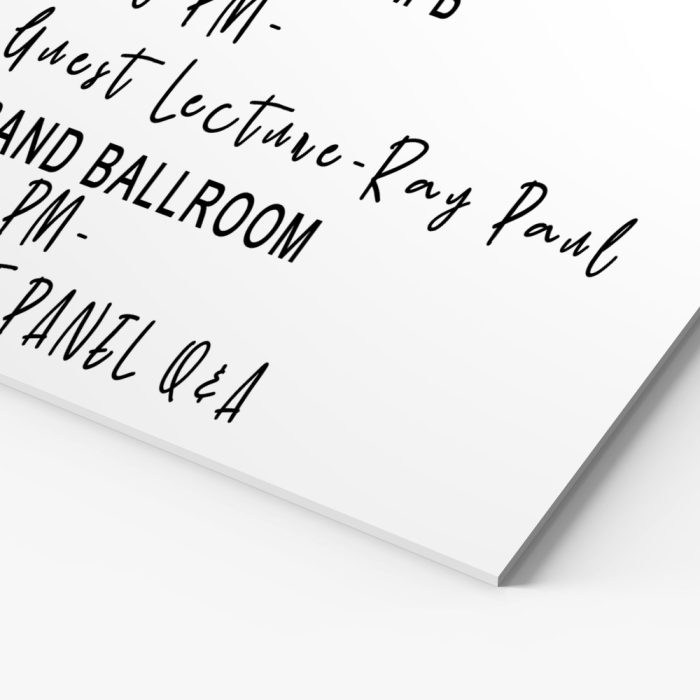 PM-
Guest Lecture-Ray Paul
AND BALLROOM
PM-
PANEL Q&A